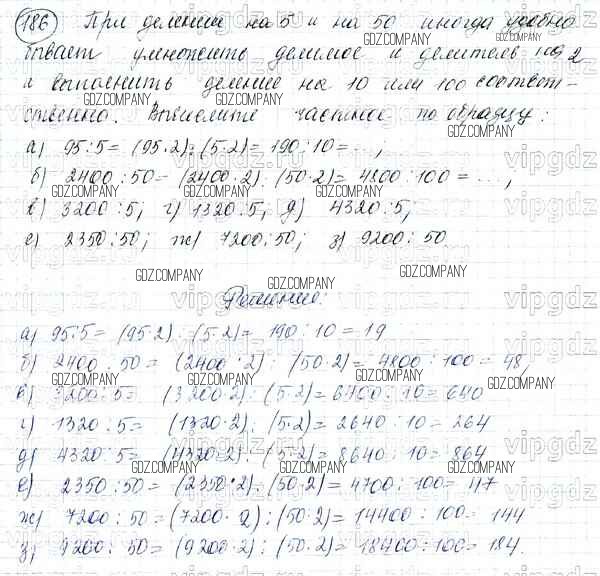 186 При делении на 5 и на 50 иногда удобно
бывает умножить делимое и делитель на 2
и выполнить деление на 10 или 100 соответ-
ственно. Вычислите частное по образцу:
а) 95:5= (95·2):(5·2)= 190:10=...,
б) 2400:50= (2400·2):(50·2)= 4800:100=...,
в) 3200:5; г) 1320:5; д) 4320:5;
е) 2350:50; ж) 7200:50; з) 9200:50
Решение:
а) 95:5= (95·2):(5·2)= 190:10=19
б) 2400:50= (2400·2):(50·2)= 4800:100= 48,
в) 3200:5= (3200·2):(5·2)= 6400:10= 640
г) 1320:5= (1320·2):(5·2)= 2640:10= 264
д) 4320:5= (4320·2):(5·2)= 8640:10= 864
е) 2350:50= (2350·2):(50·2)= 4700:100= 47
ж) 7200:50=(7200·2):(50·2)= 14400:100= 144
з) 9200:50=(9200·2):(50·2)= 18400:100= 184.
GDZ.COMPANY
vipgdz.ru